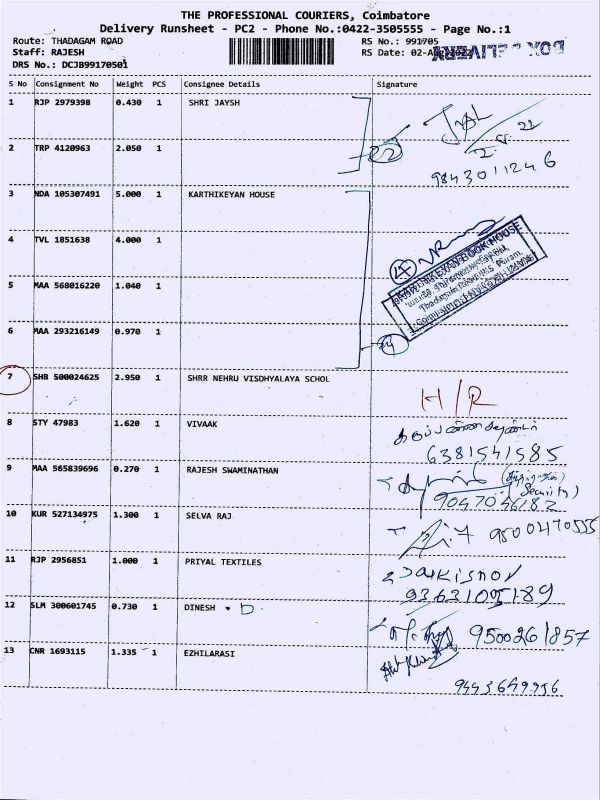 THE PROFESSIONAL COURIERS, Coimbatore
Delivery Runsheet - PC2 - Phone No.:0422-3505555 - Page No.:1
Route: THADAGAM ROAD RS No.: 991705
Staff: RAJESH RS Date: 02-Aug-2022
DRS No.: DCJB99170501
S No Consignment No Weight PCS Consignee Details Signature
1 RJP 2979398 0.430 1 SHRI JAYSH
2 TRP 4120963 2.050 1
9843011246
3 NDA 105307491 5.000 1 KARTHIKEYAN HOUSE
4 TVL 1851638 4.000 1
5 MAA 568016220 1.040 1
6 MAA 293216149 0.970 1
7 SHB 500024625 2.950 1 SHRR NEHRU VISDHYALAYA SCHOL
H/R
8 STY 47983 1.620 1 VIVAAK
6381541585
9 MAA 565839696 0.270 1 RAJESH SWAMINATHAN
Security)
9047046182
10 KUR 527134975 1.300 1 SELVA RAJ
9500470555
11 RJP 2956851 1.000 1 PRIYAL TEXTILES
9363105189
12 SLM 300601745 0.730 1 DINESH
9500261857
13 CNR 1693115 1.335 1 EZHILARASI
9443649956